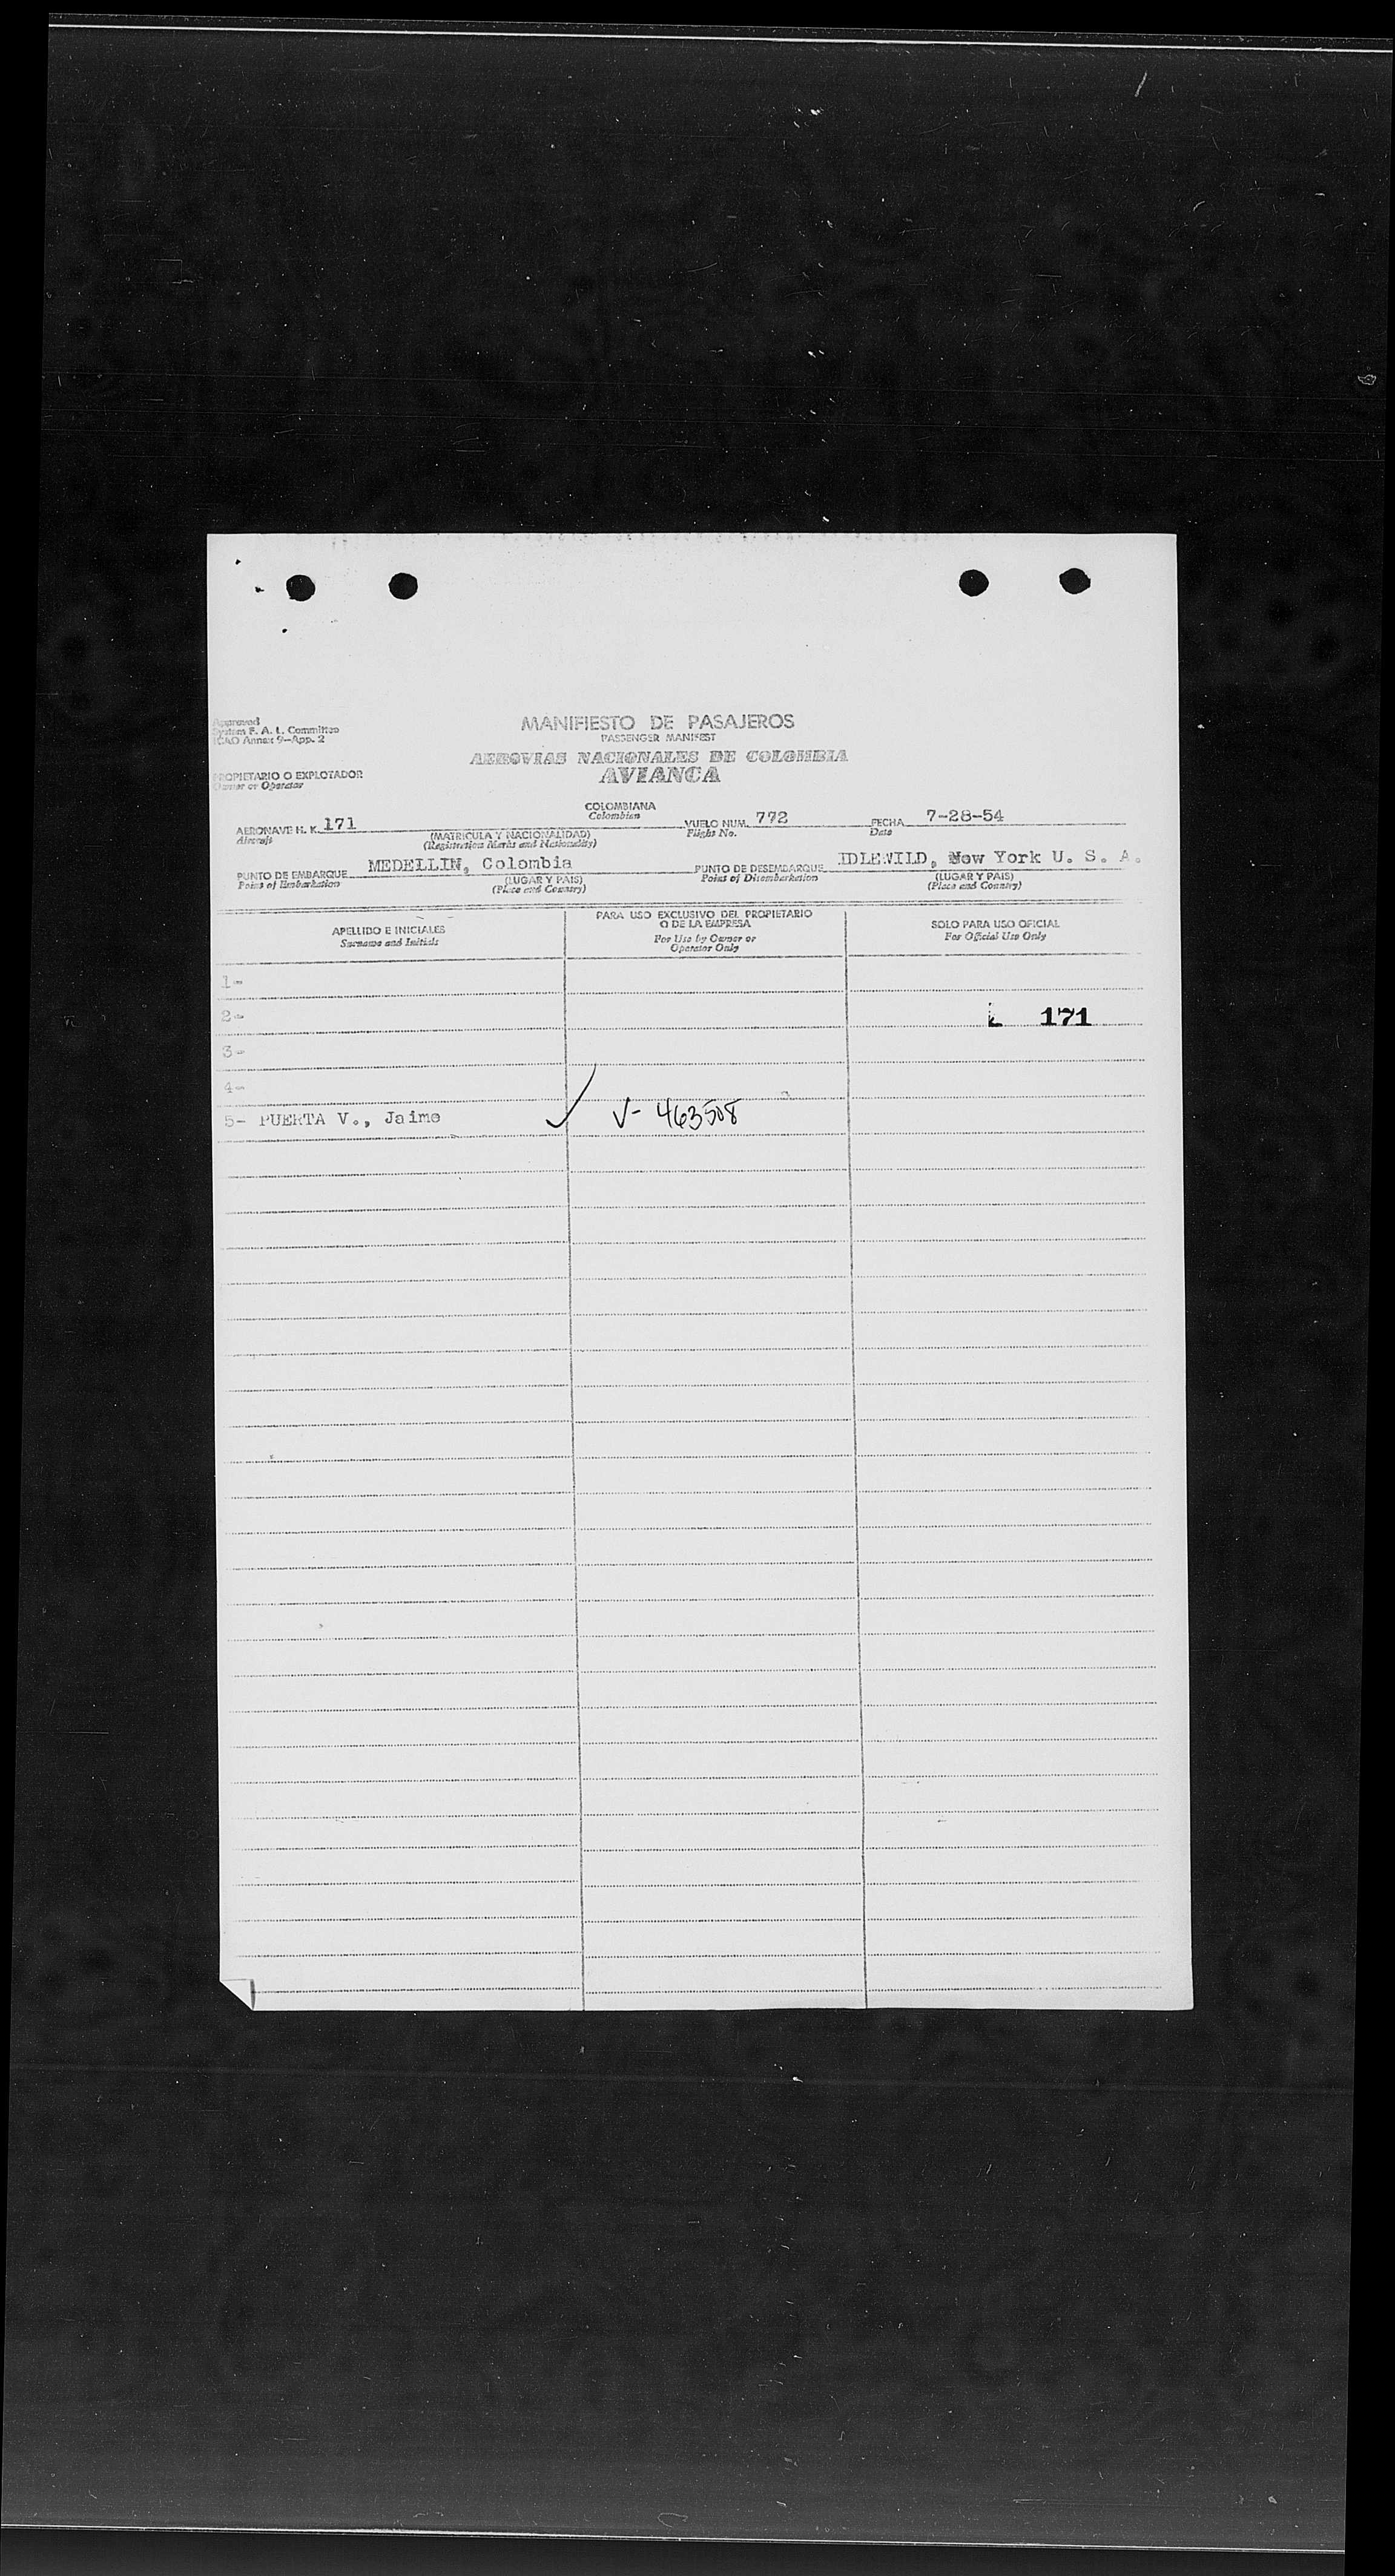 Approved
System F. A. L. Committee
ICAO Annex 9—App. 2
MANIFIESTO DE PASAJEROS
PASSENGER MANIFEST
AEROVIAS NACIONALES DE COLOMBIA
AVIANCA
PROPIETARIO O EXPLOTADOR
Owner or Operator
COLOMBIANA
Colombian
AERONAVE H. K. 171 VUELO NUM. 772 FECHA 7-28-54
Aircraft (MATRICULA Y NACIONALIDAD) Flight No. Date
(Registration Marks and Nationality)
PUNTO DE EMBARQUE MEDELLIN, Colombia PUNTO DE DESEMBARQUE IDLEWILD, New York U. S. A.
Point of Embarkation (LUGAR Y PAIS) Point of Disembarkation (LUGAR Y PAIS)
(Place and Country) (Place and Country)
APELLIDO E INICIALES PARA USO EXCLUSIVO DEL PROPIETARIO O DE LA EMPRESA SOLO PARA USO OFICIAL
Surname and Initials For Use by Owner or Operator Only For Official Use Only
1-
2- 171
3-
4-
5- PUERTA V., Jaime V- 463508